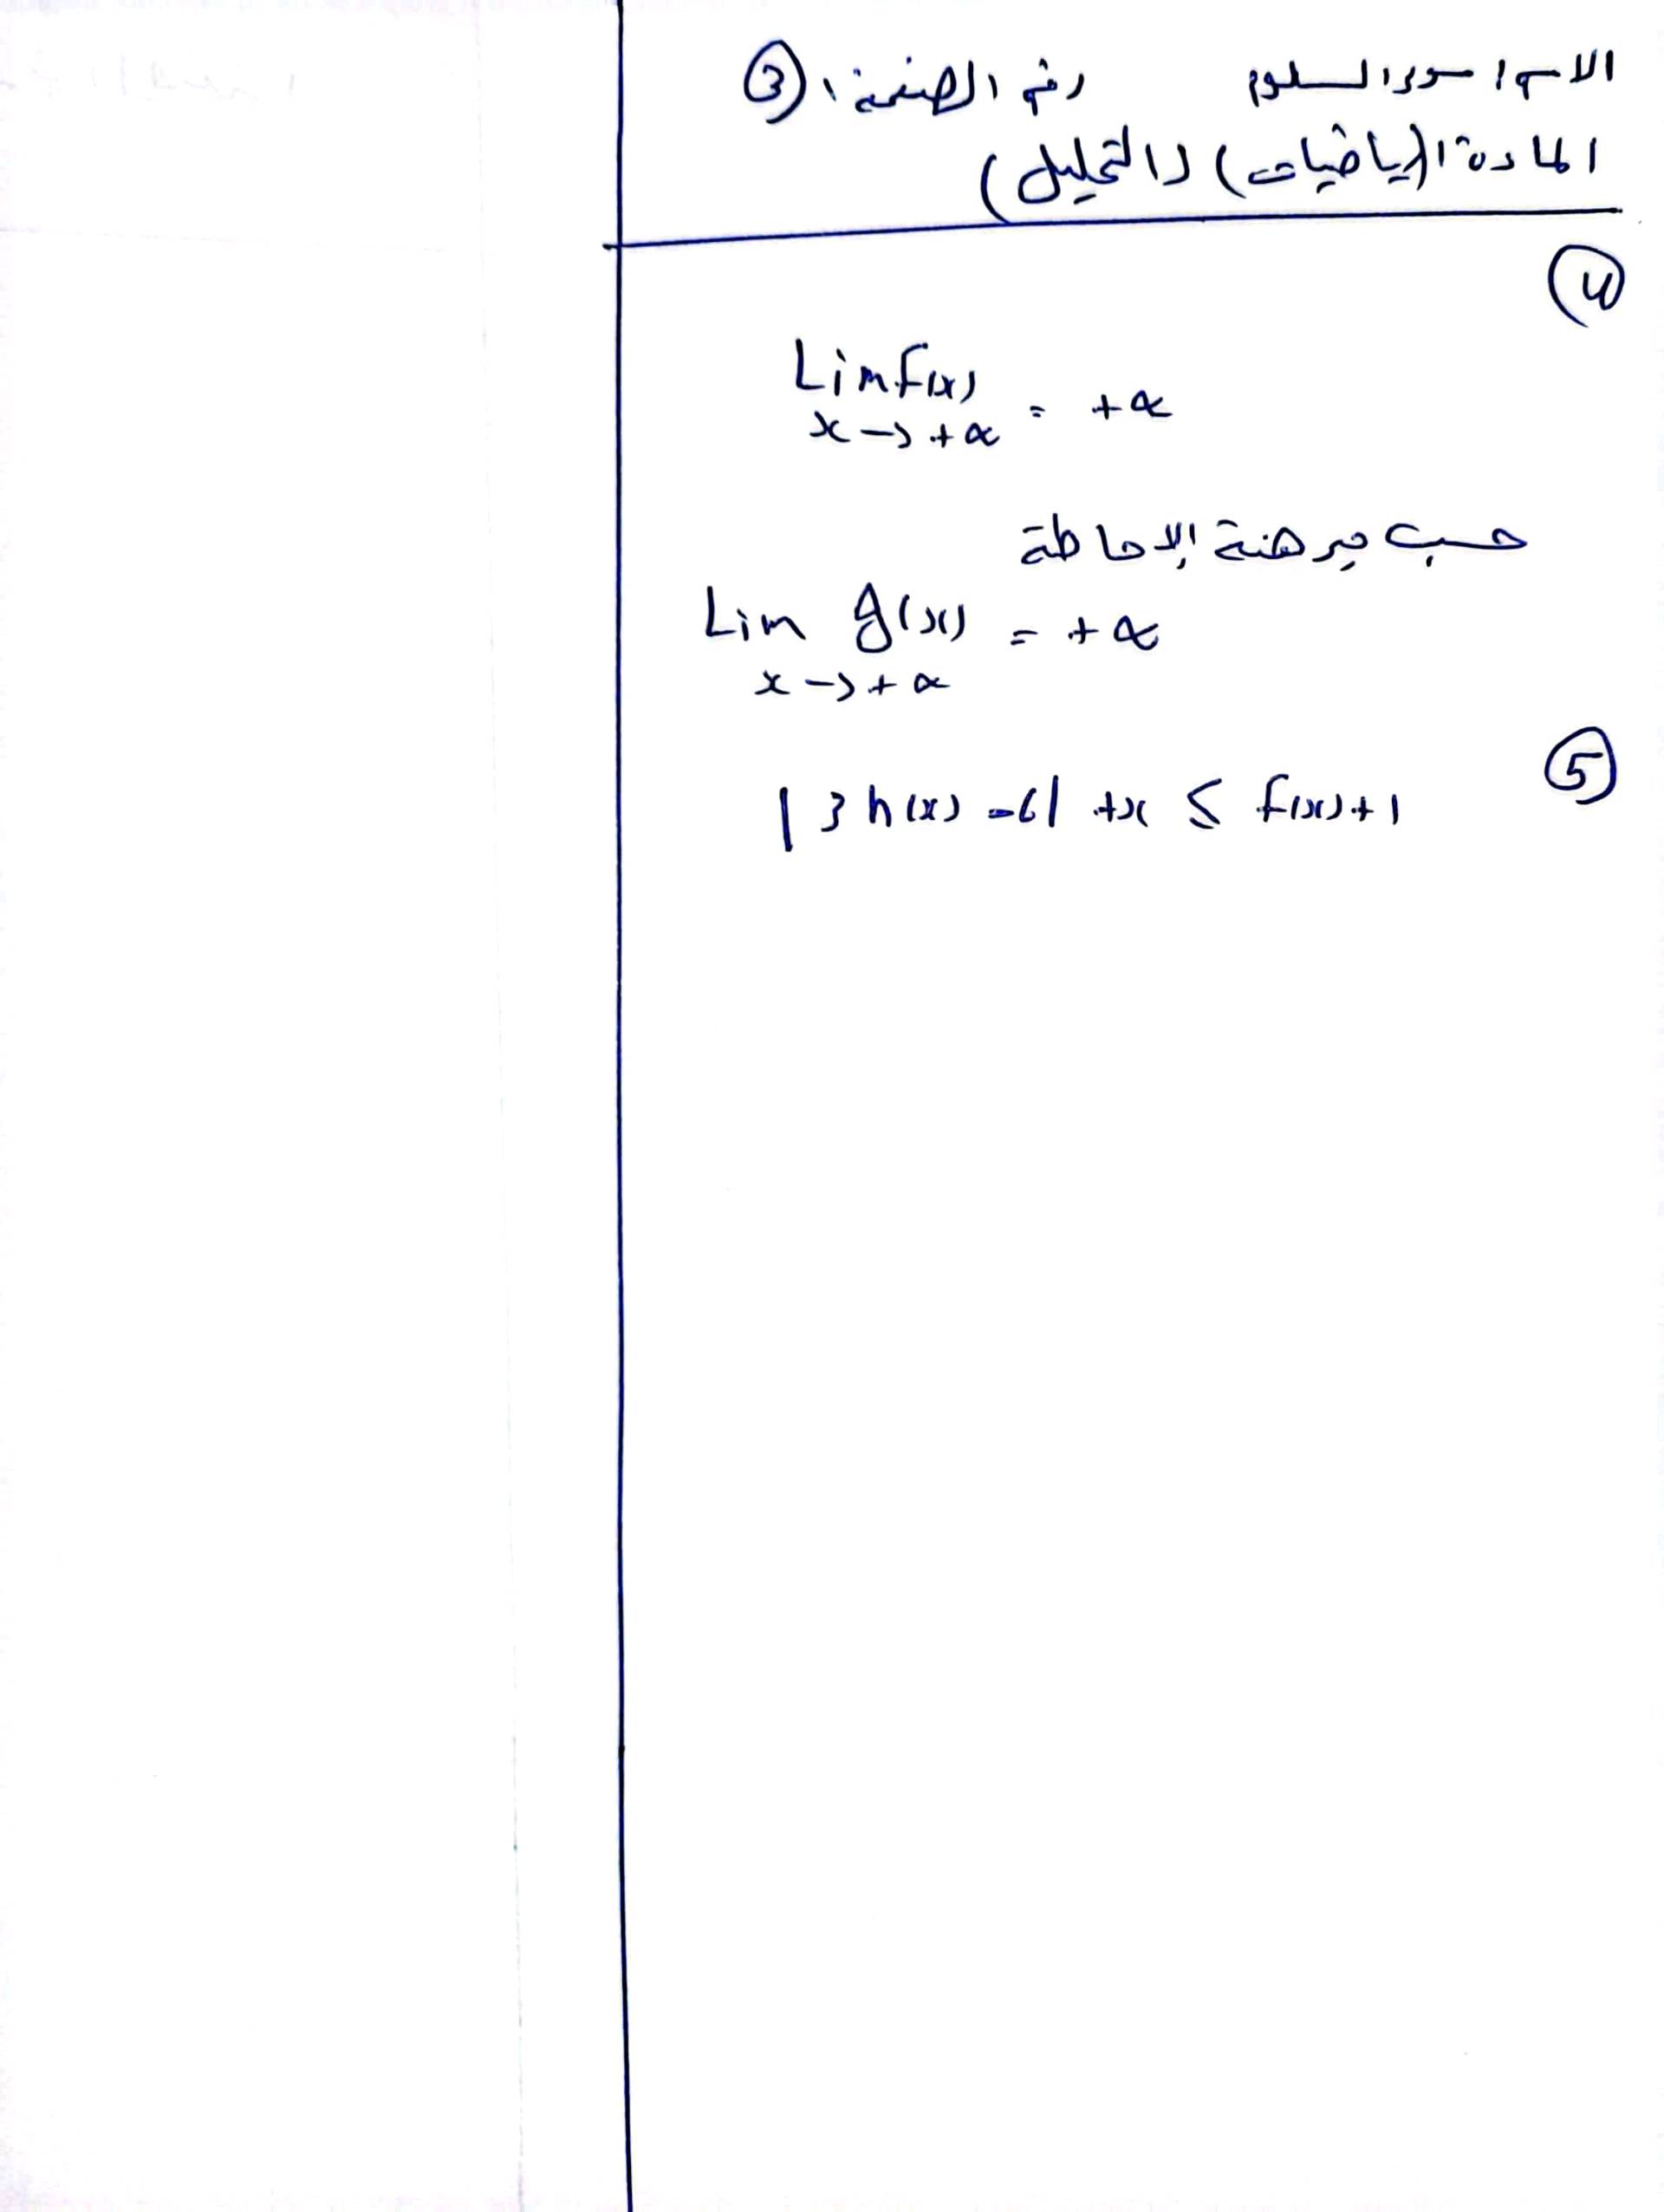 الاسم: سوزي السلوم رقم الصفحة: ③
المادة: (رياضيات) (التحليل)
④
Lim f(x) = +∝
x -> +∝
حسب مبرهنة الإحاطة
Lim g(x) = +∝
x -> +∝
⑤
| 3 h(x) - 6 | + x ≤ f(x) + 1